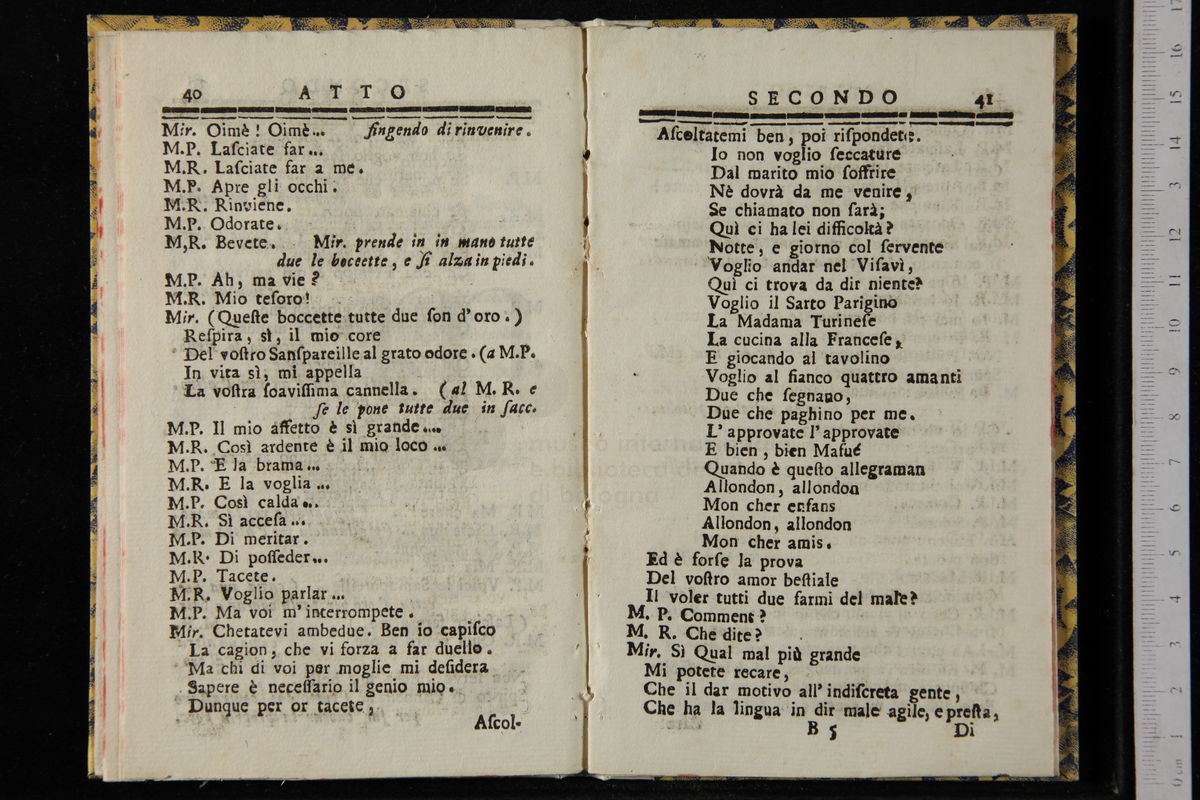 40 ATTO
Mir. Oimè! Oimè... fingendo di rinvenire.
M.P. Laſciate far...
M.R. Laſciate far a me.
M.P. Apre gli occhi.
M.R. Rinviene.
M.P. Odorate.
M.R. Bevete. Mir. prende in in mano tutte
due le boccette, e ſi alza in piedi.
M.P. Ah, ma vie?
M.R. Mio teſoro!
Mir. (Queſte boccette tutte due ſon d'oro.)
Reſpira, sì, il mio core
Del voſtro Sanſpareille al grato odore. (a M.P.
In vita sì, mi appella
La voſtra ſoaviſſima cannella. (al M. R. e
ſe le pone tutte due in ſacc.
M.P. Il mio affetto è sì grande....
M.R. Così ardente è il mio loco...
M.P. E la brama...
M.R. E la voglia...
M.P. Così calda...
M.R. Sì acceſa...
M.P. Di meritar.
M.R. Di poſſeder...
M.P. Tacete.
M.R. Voglio parlar...
M.P. Ma voi m'interrompete.
Mir. Chetatevi ambedue. Ben io capiſco
La cagion, che vi forza a far duello.
Ma chi di voi per moglie mi deſidera
Sapere è neceſſario il genio mio.
Dunque per or tacete,
Aſcol-
SECONDO 41
Aſcoltatemi ben, poi riſpondete.
Io non voglio ſeccature
Dal marito mio ſoffrire
Nè dovrà da me venire,
Se chiamato non ſarà;
Quì ci ha lei difficoltà?
Notte, e giorno col ſervente
Voglio andar nel Viſavì,
Quì ci trova da dir niente?
Voglio il Sarto Parigino
La Madama Turineſe
La cucina alla Franceſe,
E giocando al tavolino
Voglio al fianco quattro amanti
Due che ſegnano,
Due che paghino per me.
L'approvate l'approvate
E bien, bien Mafué
Quando è queſto allegraman
Allondon, allondon
Mon cher enfans
Allondon, allondon
Mon cher amis.
Ed è forſe la prova
Del voſtro amor beſtiale
Il voler tutti due farmi del male?
M. P. Comment?
M. R. Che dite?
Mir. Sì Qual mal più grande
Mi potete recare,
Che il dar motivo all'indiſcreta gente,
Che ha la lingua in dir male agile, e preſta,
B 5 Di